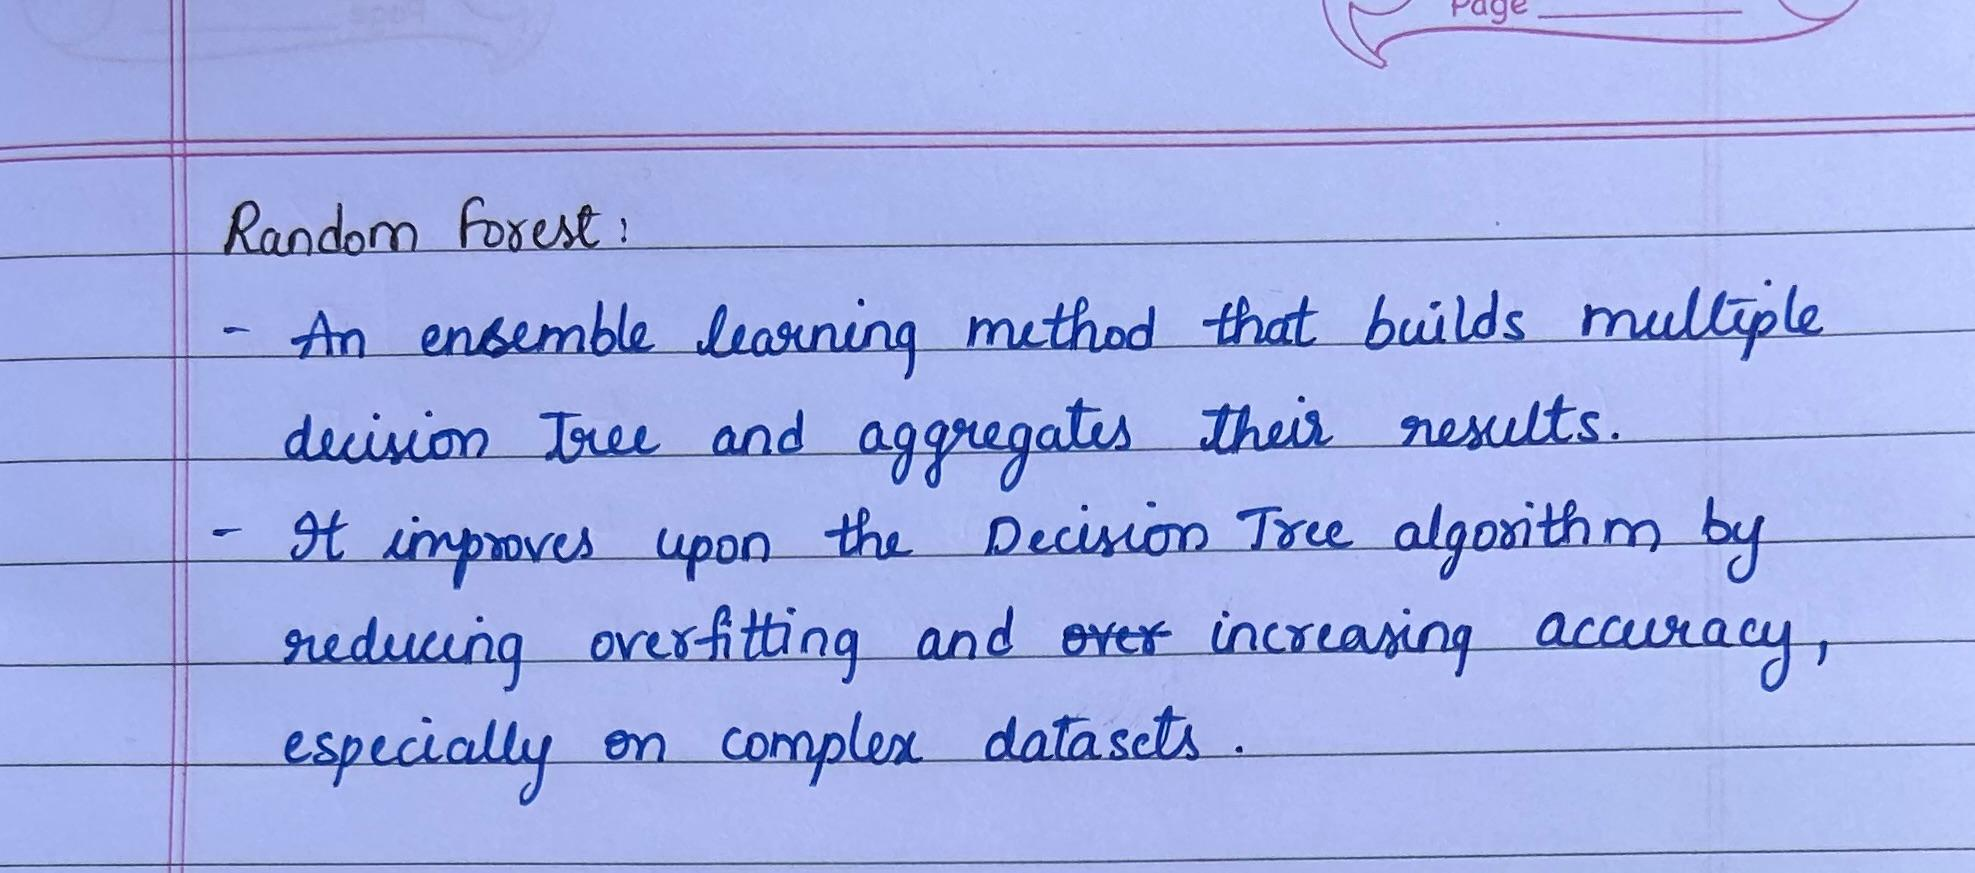 Page
Random Forest:
- An ensemble learning method that builds multiple
decision Tree and aggregates their results.
- It improves upon the Decision Tree algorithm by
reducing overfitting and over increasing accuracy,
especially on complex datasets.